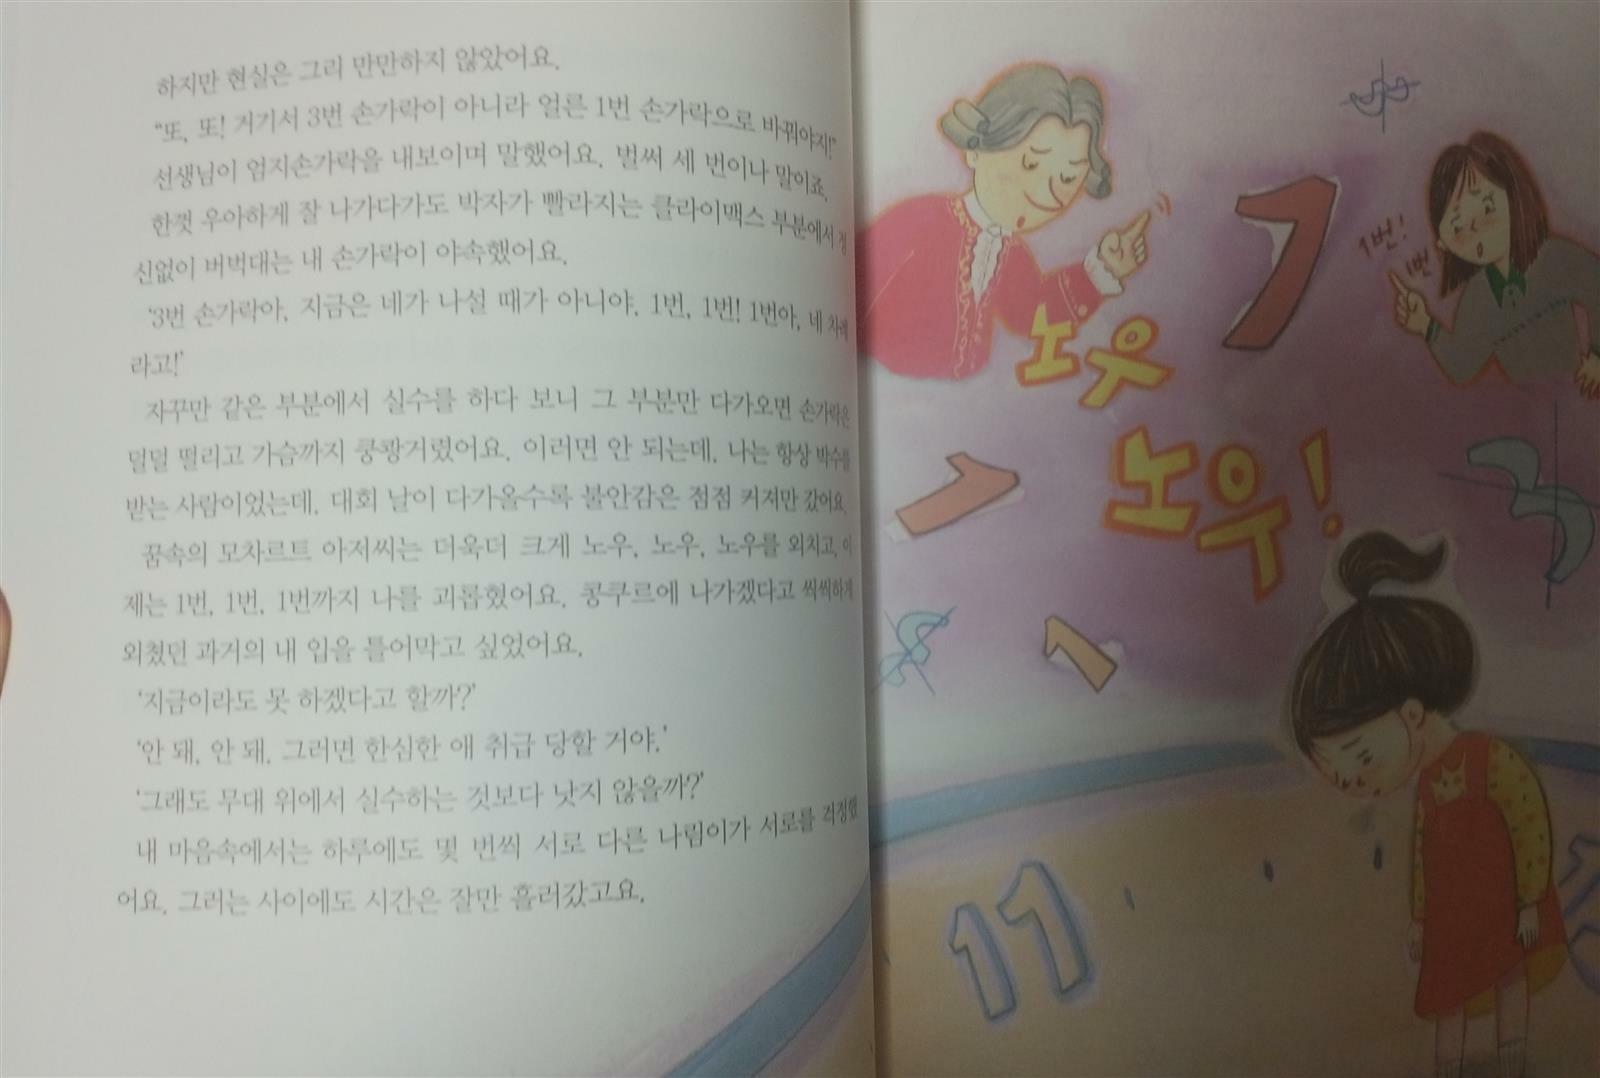 하지만 현실은 그리 만만하지 않았어요.
“또, 또! 거기서 3번 손가락이 아니라 얼른 1번 손가락으로 바꿔야지!”
선생님이 엄지손가락을 내보이며 말했어요. 벌써 세 번이나 말이죠.
한껏 우아하게 잘 나가다가도 박자가 빨라지는 클라이맥스 부분에서 정
신없이 버벅대는 내 손가락이 야속했어요.
‘3번 손가락아, 지금은 네가 나설 때가 아니야. 1번, 1번! 1번아, 네 차례
라고!’
자꾸만 같은 부분에서 실수를 하다 보니 그 부분만 다가오면 손가락은
덜덜 떨리고 가슴까지 쿵쾅거렸어요. 이러면 안 되는데. 나는 항상 박수를
받는 사람이었는데. 대회 날이 다가올수록 불안감은 점점 커져만 갔어요.
꿈속의 모차르트 아저씨는 더욱더 크게 노우, 노우, 노우를 외치고, 이
제는 1번, 1번, 1번까지 나를 괴롭혔어요. 콩쿠르에 나가겠다고 씩씩하게
외쳤던 과거의 내 입을 틀어막고 싶었어요.
‘지금이라도 못 하겠다고 할까?’
‘안 돼, 안 돼. 그러면 한심한 애 취급 당할 거야.’
‘그래도 무대 위에서 실수하는 것보다 낫지 않을까?’
내 마음속에서는 하루에도 몇 번씩 서로 다른 나림이가 서로를 걱정했
어요. 그러는 사이에도 시간은 잘만 흘러갔고요.
1
1번!
1번
노우
노우!
1
1
11